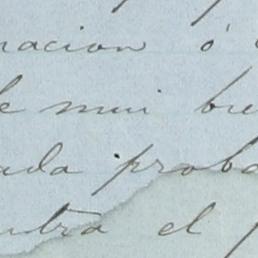 nacion ó
de mui bue
ada proba
ntra el